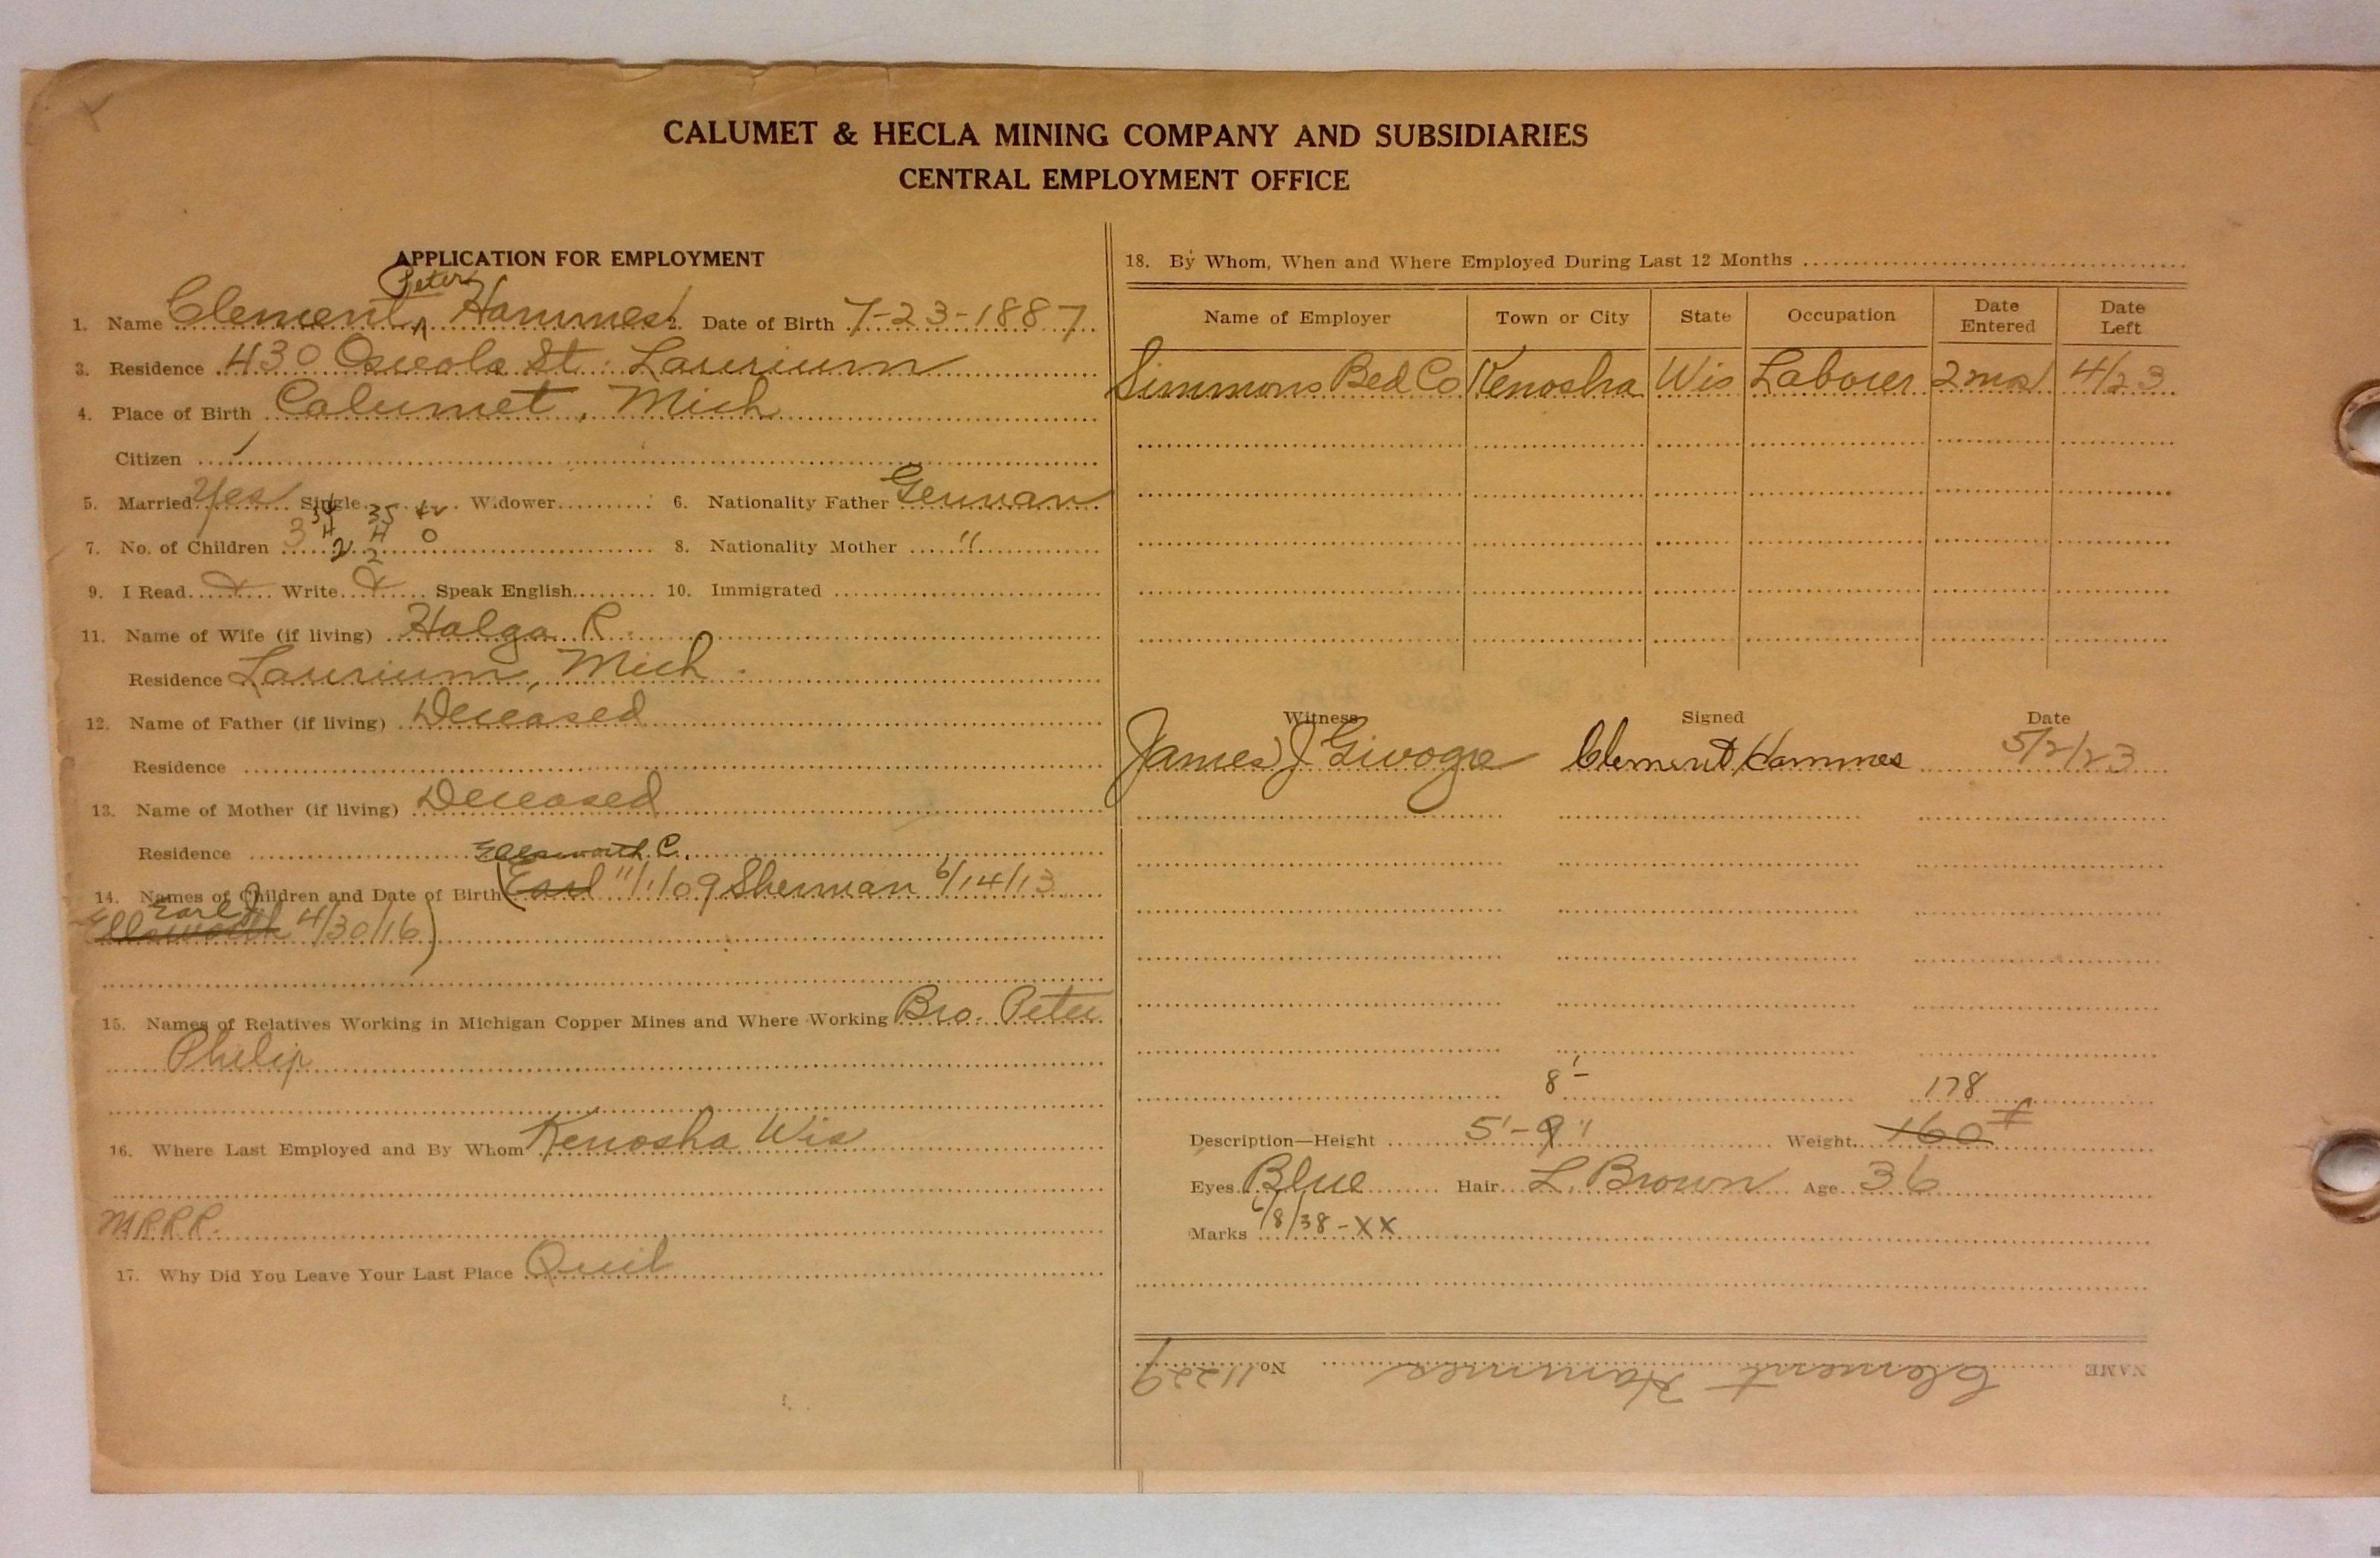 CALUMET & HECLA MINING COMPANY AND SUBSIDIARIES
CENTRAL EMPLOYMENT OFFICE
APPLICATION FOR EMPLOYMENT
Peter
1. Name Clement Hammes 2. Date of Birth 7-23-1887
3. Residence 430 Osceola St. Laurium
4. Place of Birth Calumet, Mich
Citizen /
5. Married Yes Single Widower 6. Nationality Father German
34 35
7. No. of Children 3 4 2 4 2 0 8. Nationality Mother "
9. I Read Write Speak English 10. Immigrated
11. Name of Wife (if living) Halga R.
Residence Laurium, Mich.
12. Name of Father (if living) Deceased
Residence
13. Name of Mother (if living) Deceased
Residence
Ellsworth C.
14. Names of Children and Date of Birth (Earl 11/1/09 Sherman 6/14/13
Earl J
Ellsworth 4/30/16)
15. Names of Relatives Working in Michigan Copper Mines and Where Working Bro. Peter
Philip
16. Where Last Employed and By Whom Kenosha Wis
M.R.R.R.
17. Why Did You Leave Your Last Place Quit
18. By Whom, When and Where Employed During Last 12 Months
Name of Employer Town or City State Occupation Date Entered Date Left
Simmons Bed Co Kenosha Wis Laborer 2 mos 4/23
Witness Signed Date
James J Clement Hammes 5/2/23
8 178
Description—Height 5'-9" Weight 160 #
Eyes Blue Hair L. Brown Age 36
Marks 6/8/38-XX
NAME Clement Hammes No. 11229